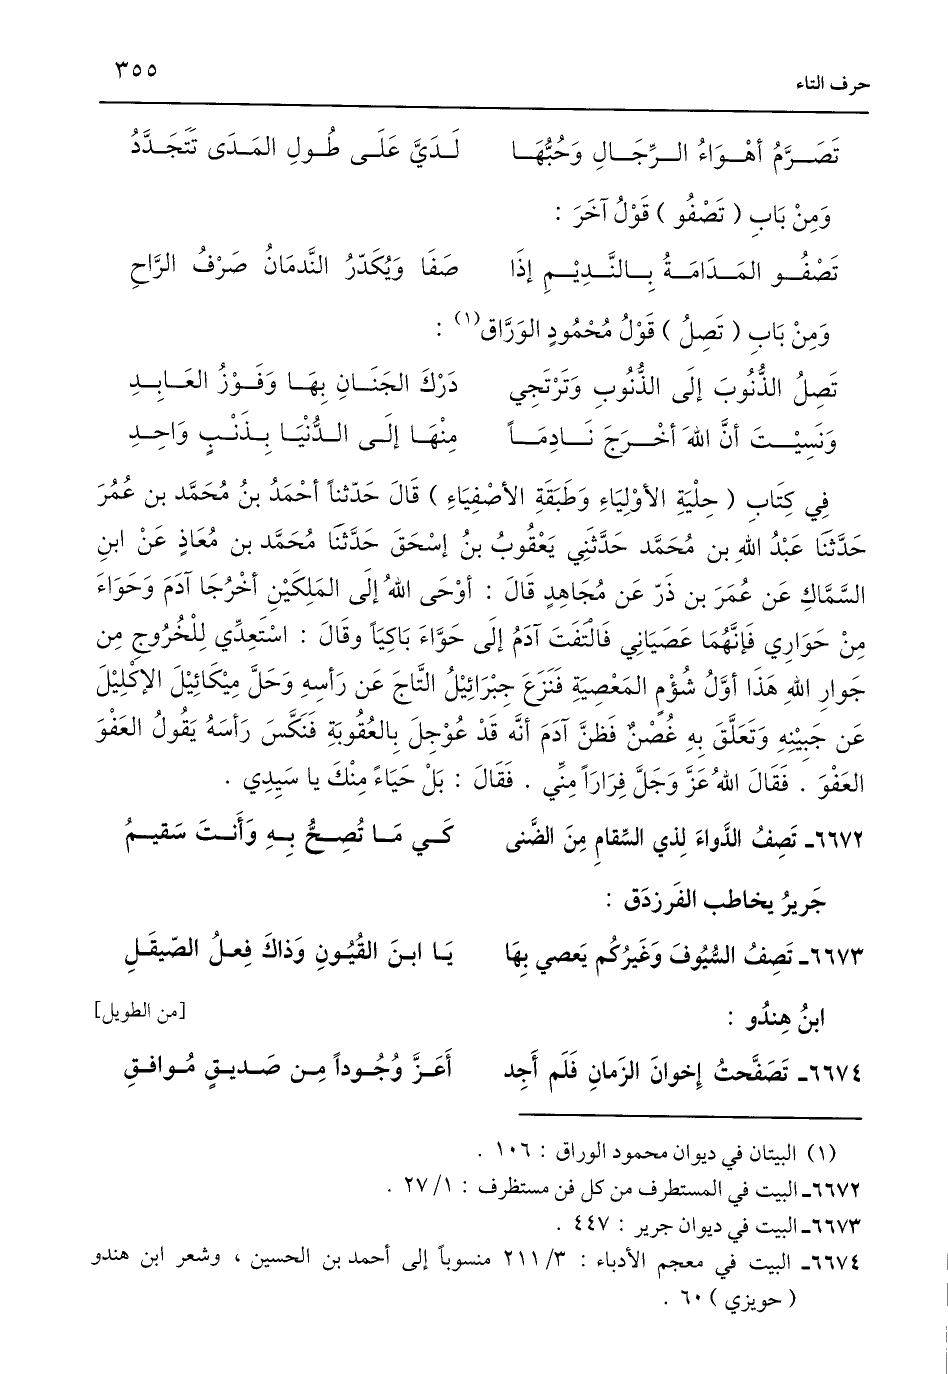 حرف التاء ٣٥٥
تَصَـرَّمُ أهْـوَاءُ الـرِّجَـالِ وَحُبُّهَـا لَـدَيَّ عَلَـى طُـولِ المَـدَى تَتَجَـدَّدُ
وَمِنْ بَابِ ( تَصْفُو ) قَوْلُ آخَرَ :
تَصْفُـو المَـدَامَـةُ بِـالنَّدِيْـمِ إِذَا صَفَا وَيُكَدِّرُ النَّدمَانُ صَرْفُ الرَّاحِ
وَمِنْ بَابِ ( تَصِلُ ) قَوْلُ مُحْمُودٍ الوَرَّاق(١) :
تَصِلُ الذُّنُوبَ إِلَى الذُّنُوبِ وَتَرْتَجِي دَرْكَ الجَنَـانِ بِهَـا وَفَـوْزُ العَـابِـدِ
وَنَسِيْـتَ أنَّ اللهَ أخْـرَجَ نَـادِمَـاً مِنْهَـا إِلَـى الـدُّنْيَـا بِـذَنْـبٍ وَاحِـدِ
فِي كِتَابِ ( حِلْيَةِ الأوْلِيَاءِ وَطَبَقَةِ الأصْفِيَاءِ ) قَالَ حَدّثَناَ أحْمَدُ بنُ مُحَمَّد بن عُمَرَ
حَدَّثَنَا عَبْدُ اللهِ بن مُحَمَّد حَدَّثَنِي يَعْقُوبُ بنُ إسْحَقَ حَدَّثَنَا مُحَمَّد بن مُعَاذٍ عَنْ ابنِ
السَّمَّاكِ عَن عُمَرَ بن ذَرّ عَن مُجَاهِدٍ قَالَ : أوْحَى اللهُ إِلَى المَلِكَيْنِ أخْرُجَا آدَمَ وَحَوَاءَ
مِنْ جَوَارِي فَإنَّهُمَا عَصَيَانِي فَالْتَفَتَ آدَمُ إلَى حَوَّاءَ بَاكِيَاً وقَالَ : اسْتَعِدِّي لِلْخُرُوجِ مِن
جَوارِ اللهِ هَذَا أوَّلُ شُؤْمِ المَعْصِيَةِ فَنَزَعَ جِبْرَائِيْلُ التَّاجَ عَن رَأسِهِ وَحَلَّ مِيْكَائِيْلَ الإكْلِيْلَ
عَن جَبِيْنِهِ وَتَعَلَّقَ بِهِ غُصْنٌ فَظَنَّ آدَمَ أنَّه قَدْ عُوْجِلَ بِالعُقُوبَةِ فَنَكَّسَ رَأسَهُ يَقُولُ العَفْوَ
العَفْوَ . فَقَالَ اللهُ عَزَّ وَجَلَّ فِرَارَاً مِنِّي . فَقَالَ : بَلْ حَيَاءً مِنْكَ يا سَيِدِي .
٦٦٧٢ـ تَصِفُ الدَّواءَ لِذي السِّقامِ مِنَ الضَّنى كَـي مَـا تُصِـحُّ بِـهِ وَأَنـتَ سَقيـمُ
جَريرُ يخاطب الفَرزدَق :
٦٦٧٣ـ تَصِفُ السُّيُوفَ وَغَيرُكُم يَعصي بِهَا يَـا ابـنَ القُيُـونِ وَذاكَ فِعـلُ الصّيقَـلِ
ابنُ هِندُو : [من الطويل]
٦٦٧٤ـ تَصَفَّحتُ إِخوانَ الزمَانِ فَلَم أَجِد أَعَـزَّ وُجُـوداً مِـن صَـديـقٍ مُـوافـقِ
(١) البيتان في ديوان محمود الوراق : ١٠٦ .
٦٦٧٢ـ البيت في المستطرف من كل فن مستظرف : ٢٧/١ .
٦٦٧٣ـ البيت في ديوان جرير : ٤٤٧ .
٦٦٧٤ـ البيت في معجم الأدباء : ٢١١/٣ منسوباً إلى أحمد بن الحسين ، وشعر ابن هندو
( حويزي ) ٦٠ .